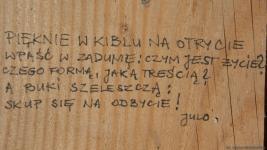 PIĘKNIE W KIBLU NA OTRYCIE
WPAŚĆ W ZADUMĘ: CZYM JEST ŻYCIE?
CZEGO FORMĄ, JAKĄ TREŚCIĄ?
A BUKI SZELESZCZĄ:
SKUP SIĘ NA ODBYCIE!
JULO.